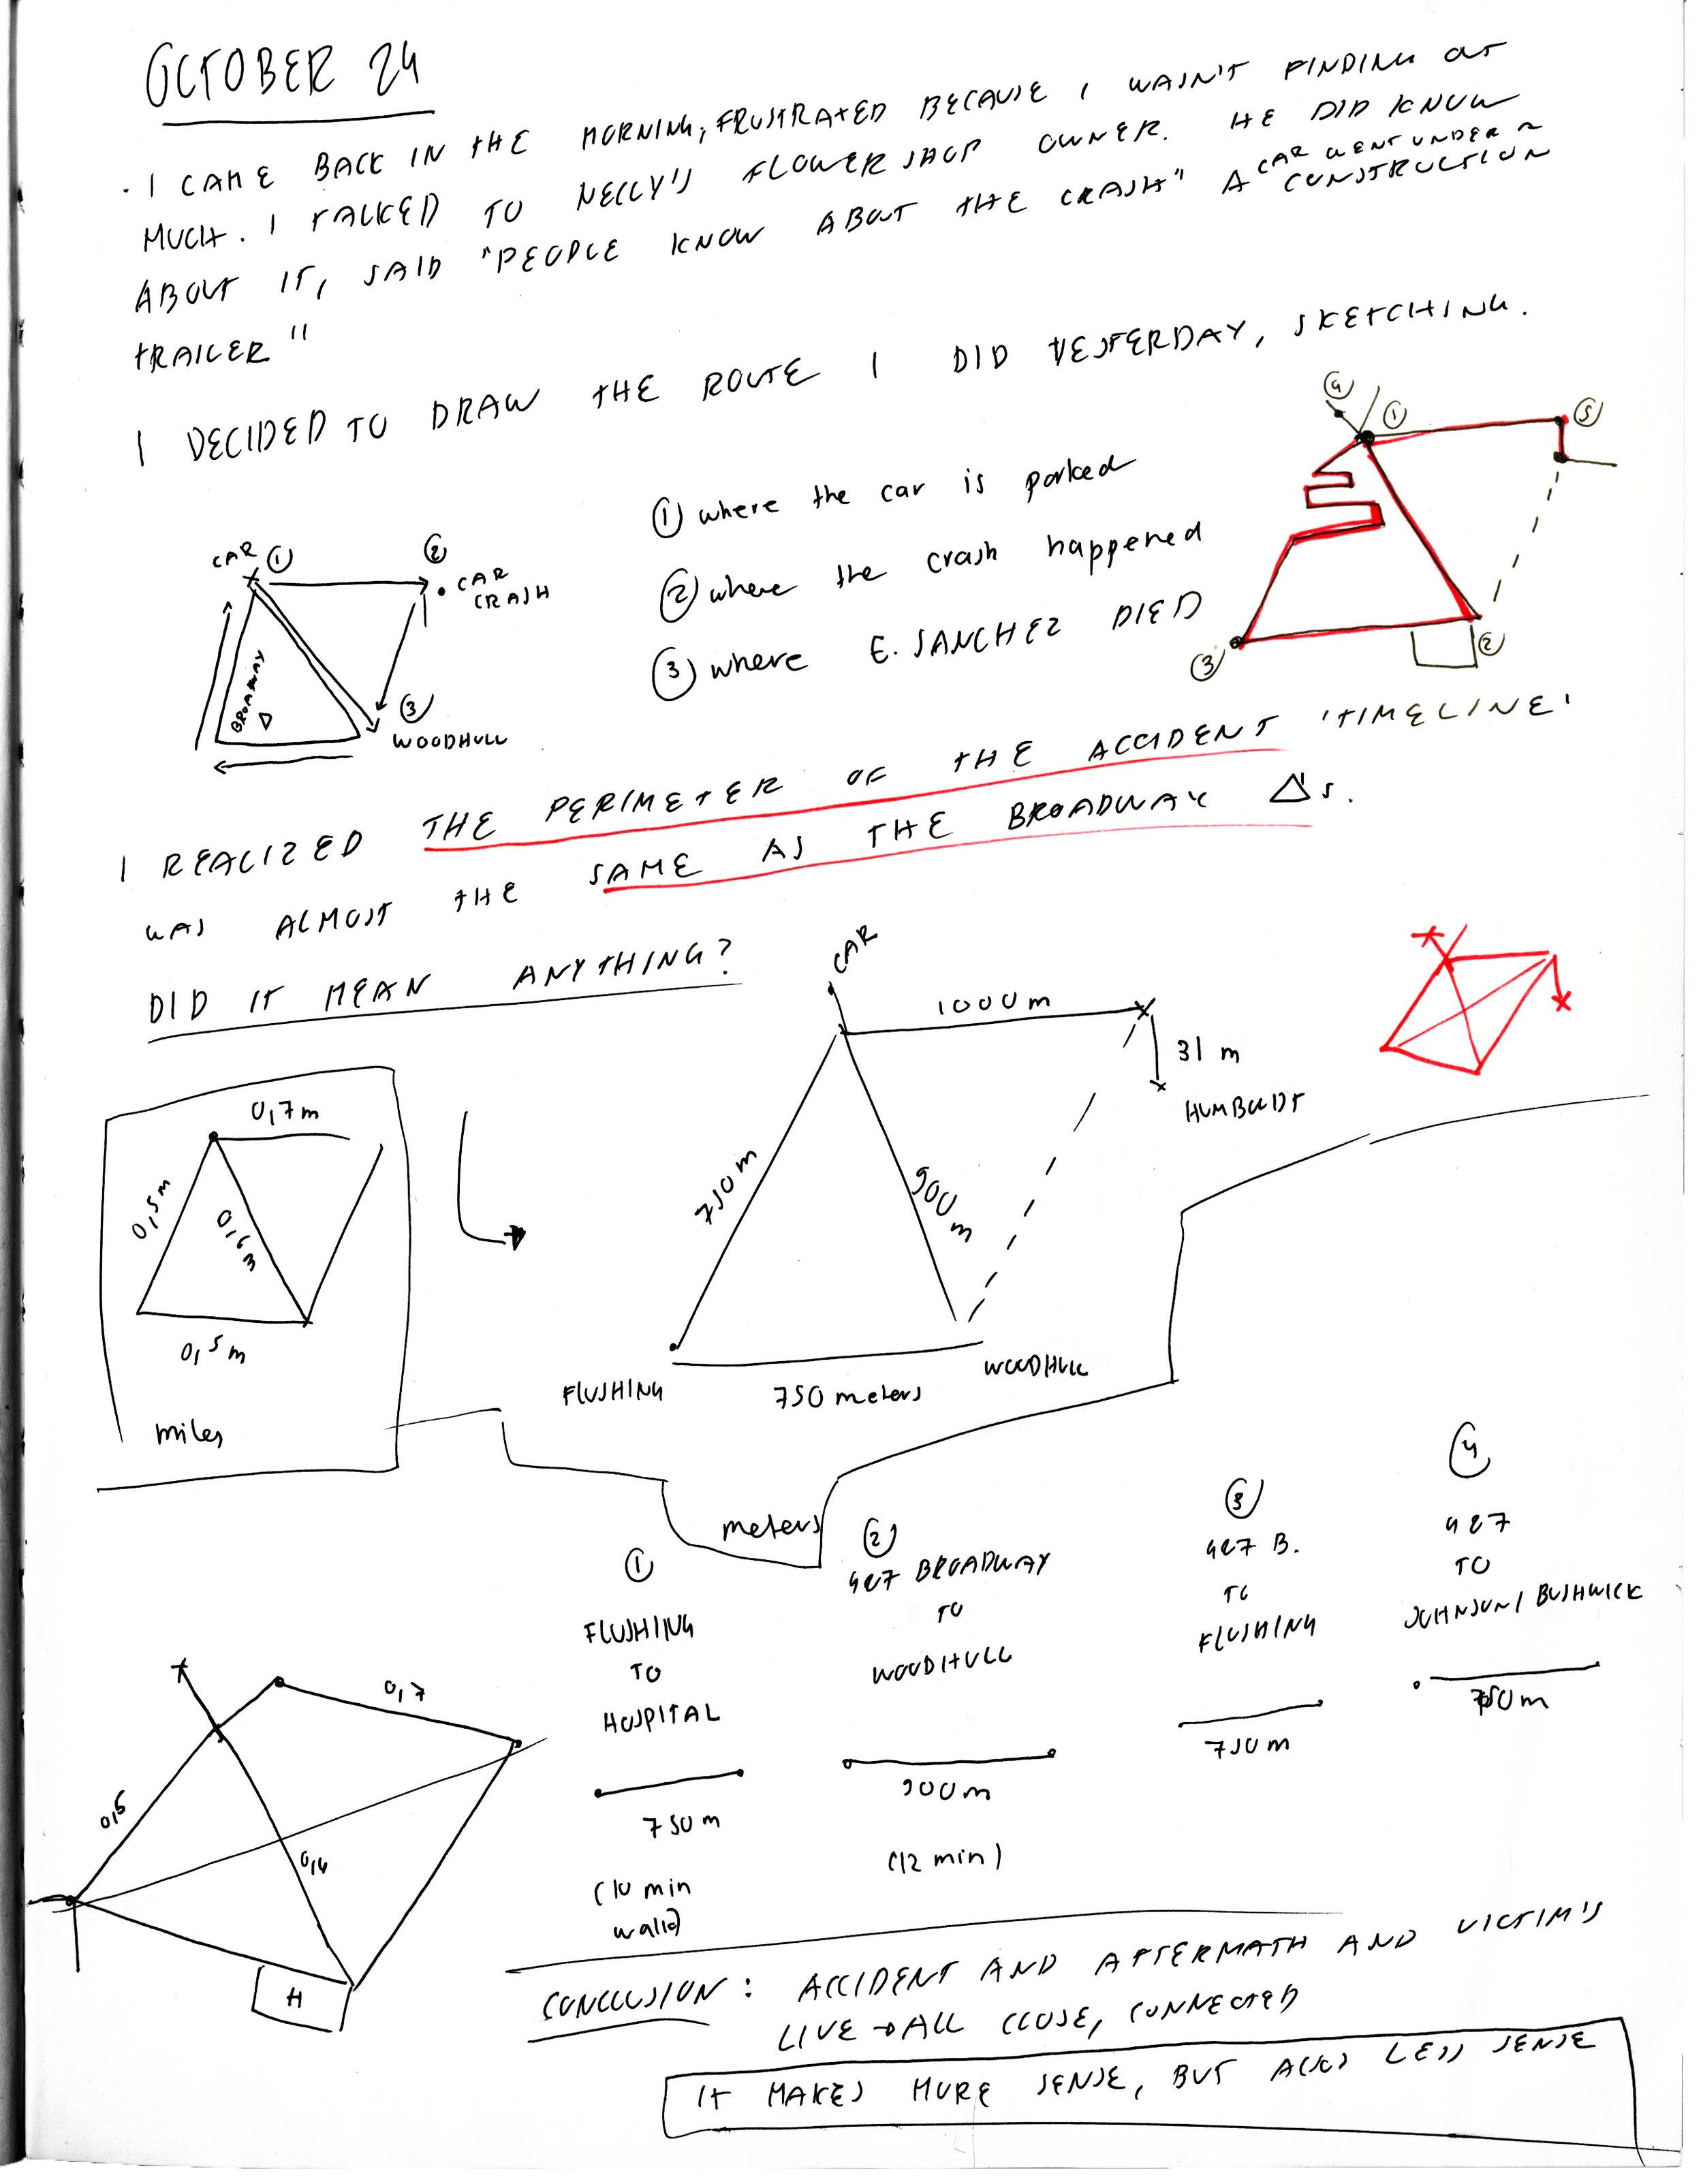 OCTOBER 24
· I CAME BACK IN THE MORNING, FRUSTRATED BECAUSE I WASN'T FINDING OUT
MUCH. I TALKED TO NELLY'S FLOWER SHOP OWNER. HE DID KNOW
ABOUT IT, SAID "PEOPLE KNOW ABOUT THE CRASH" A CAR WENT UNDER A CONSTRUCTION
TRAILER"
I DECIDED TO DRAW THE ROUTE I DID YESTERDAY, SKETCHING.
CAR ①
②
• CAR
CRASH
BROADWAY
Δ
③
WOODHULL
① where the car is parked
② where the crash happened
③ where E. SANCHEZ DIED
④
①
⑤
③
②
I REALIZED THE PERIMETER OF THE ACCIDENT 'TIMELINE'
WAS ALMOST THE SAME AS THE BROADWAY Δs.
DID IT MEAN ANYTHING?
0,7m
0,5m
0,6m
0,5m
miles
CAR
1000m
31 m
HUMBOLDT
750m
900m
FLUSHING
750 meters
WOODHULL
meters
①
FLUSHING
TO
HOSPITAL
750m
(10 min
walk)
②
927 BROADWAY
TO
WOODHULL
900m
(12 min)
③
927 B.
TO
FLUSHING
750m
④
927
TO
JOHNSON/BUSHWICK
750m
0,7
0,5
0,6
H
CONCLUSION: ACCIDENT AND AFTERMATH AND VICTIM'S
LIVE → ALL CLOSE, CONNECTED
IT MAKES MORE SENSE, BUT ALSO LESS SENSE